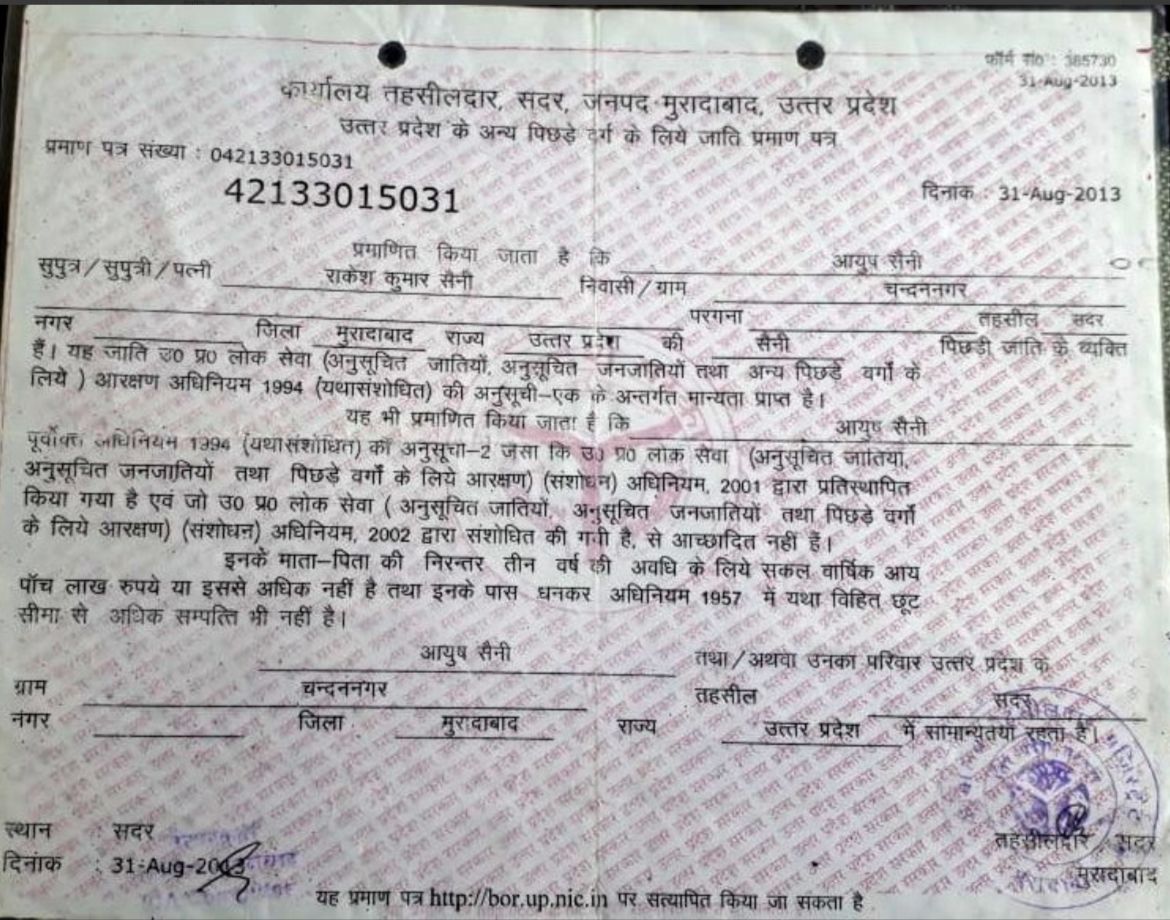 फॉर्म सं० : 385730
31-Aug-2013
कार्यालय तहसीलदार, सदर, जनपद मुरादाबाद, उत्तर प्रदेश
उत्तर प्रदेश के अन्य पिछड़े वर्ग के लिये जाति प्रमाण पत्र
प्रमाण पत्र संख्या : 042133015031
42133015031
दिनांक : 31-Aug-2013
प्रमाणित किया जाता है कि आयुष सैनी
सुपुत्र/सुपुत्री/पत्नी राकेश कुमार सैनी निवासी/ग्राम चन्दननगर
परगना तहसील सदर
नगर जिला मुरादाबाद राज्य उत्तर प्रदेश की सैनी पिछड़ी जाति के व्यक्ति
हैं। यह जाति उ0 प्र0 लोक सेवा (अनुसूचित जातियों, अनुसूचित जनजातियों तथा अन्य पिछड़े वर्गों के
लिये ) आरक्षण अधिनियम 1994 (यथासंशोधित) की अनुसूची-एक के अन्तर्गत मान्यता प्राप्त है।
यह भी प्रमाणित किया जाता है कि आयुष सैनी
पूर्वोक्त अधिनियम 1994 (यथासंशोधित) की अनुसूची-2 जैसा कि उ0 प्र0 लोक सेवा (अनुसूचित जातियों,
अनुसूचित जनजातियों तथा पिछड़े वर्गों के लिये आरक्षण) (संशोधन) अधिनियम, 2001 द्वारा प्रतिस्थापित
किया गया है एवं जो उ0 प्र0 लोक सेवा ( अनुसूचित जातियों, अनुसूचित जनजातियों तथा पिछड़े वर्गों
के लिये आरक्षण) (संशोधन) अधिनियम, 2002 द्वारा संशोधित की गयी है, से आच्छादित नहीं हैं।
इनके माता-पिता की निरन्तर तीन वर्ष की अवधि के लिये सकल वार्षिक आय
पाँच लाख रुपये या इससे अधिक नहीं है तथा इनके पास धनकर अधिनियम 1957 में यथा विहित छूट
सीमा से अधिक सम्पत्ति भी नहीं है।
आयुष सैनी तथा/अथवा उनका परिवार उत्तर प्रदेश के
ग्राम चन्दननगर तहसील सदर
नगर जिला मुरादाबाद राज्य उत्तर प्रदेश में सामान्यतया रहता है।
स्थान : सदर
दिनांक : 31-Aug-2013
तहसीलदार, सदर
मुरादाबाद
यह प्रमाण पत्र http://bor.up.nic.in पर सत्यापित किया जा सकता है